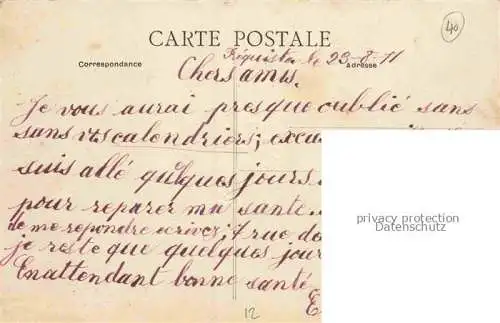 40
CARTE POSTALE
Réquista le 23-8-11
Correspondance
Adresse
Chers amis.
Je vous aurai presque oublié sans
sans vos calendriers; excu
suis allé quelques jours
pour reparer ma sante
de me repondre ecrivez; 7 rue de
je reste que quelques jour
Enattendant bonne santé
E
privacy protection
Datenschutz
12